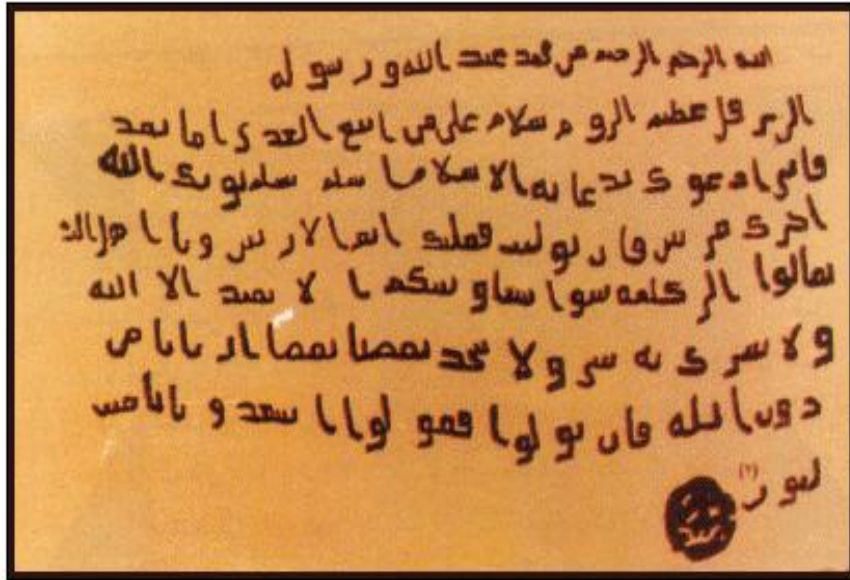 الله الرحم الرحمن من محمد عبد الله ورسوله
الى هرقل عظيم الروم سلام على من اتبع الهدى اما بعد
فانى ادعوك بدعايه الاسلام اسلم تسلم يوتك الله
اجرك مرتين فان توليت فعليك اثم الاريسين ويا اهل الكتاب
تعالوا الى كلمه سوا بيننا وبينكم ا لا نعبد الا الله
ولا نشرك به شيا ولا يتخذ بعضنا بعضا اربابا من
دون الله فان تولوا فقولوا اشهدوا بانا مسلمون
(٢)